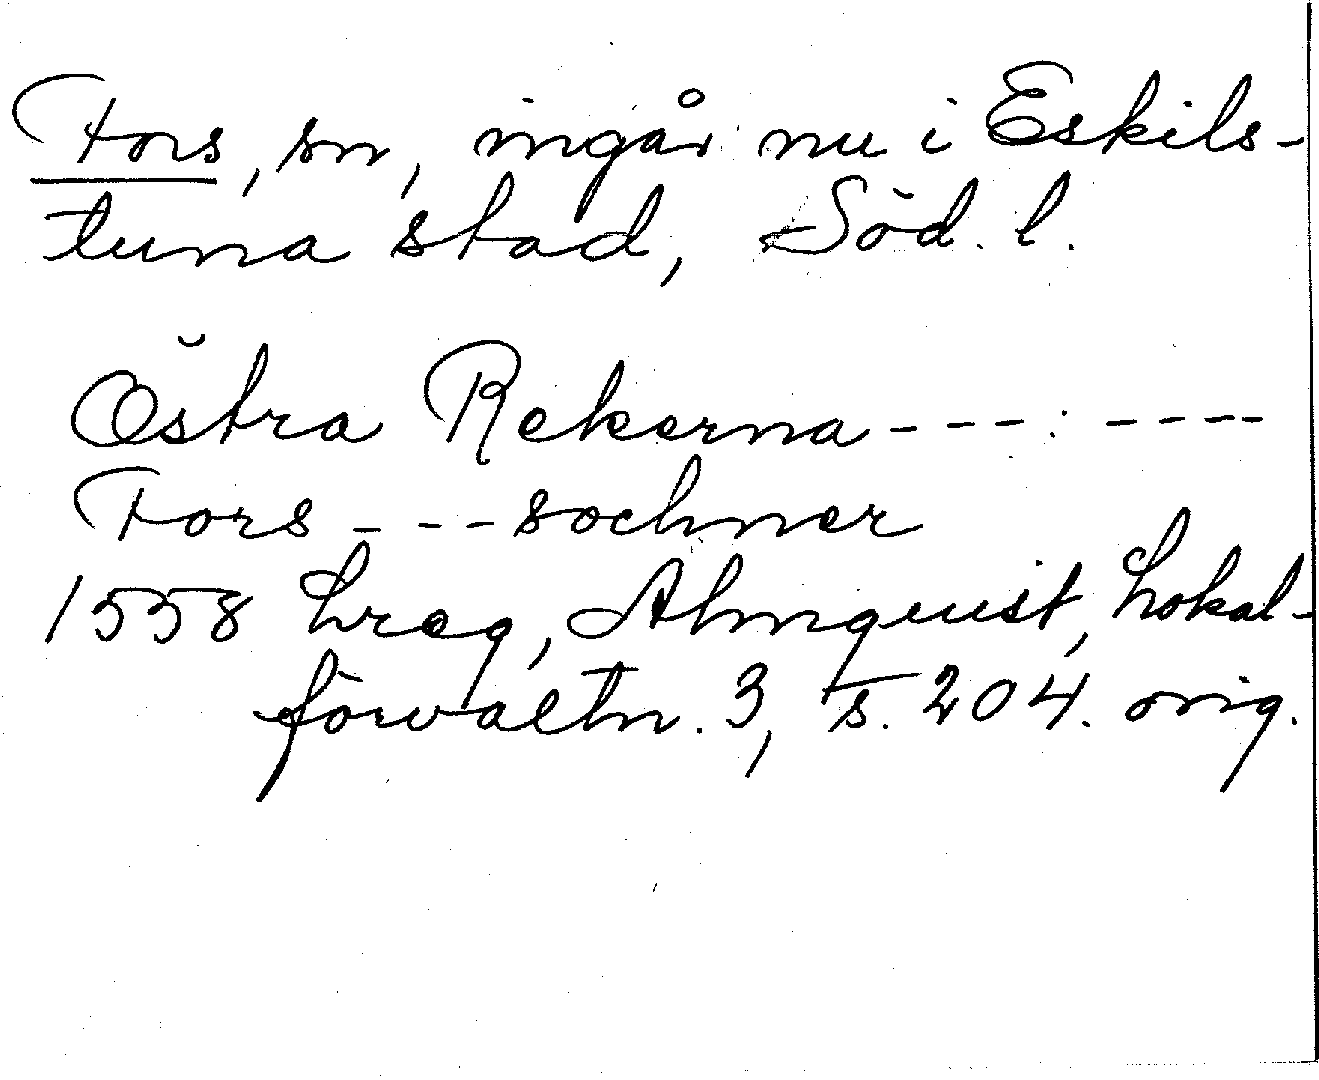 Fors, sn, ingår nu i Eskils-
tuna stad, Söd. l.
Östra Rekerna --- ----
Fors --- sochner
1558 Lreg, Almquist, Lokal-
förvaltn. 3, s. 204. orig.